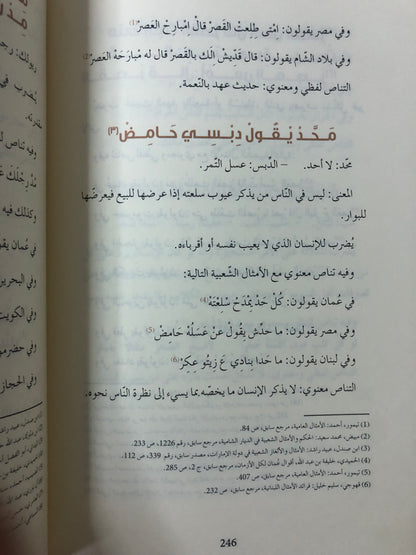 وفي مصر يقولون: إمْتى طلعتْ القصرْ قالْ إمْبارح العَصرْ(1)
وفي بلاد الشام يقولون: قال قدّيش إلك بالقصْر قال له مْبارحة العصرْ(2)
التناص لفظي ومعنوي: حديث عهد بالنّعمة.
مَحّدْ يقُولْ دِبْسِي حَامِضْ(3)
محّد: لا أحد. – الدّبس: عسل التّمر.
المعنى: ليس في النّاس من يذكر عيوب سلعته إذا عرضها للبيع فيعرضها
للبوار.
يُضرب للإنسان الذي لا يعيب نفسه أو أقرباءه.
وفيه تناص معنوي مع الأمثال الشّعبية التالية:
في عُمان يقولون: كُلْ حَدْ يمْدَحْ سِلْعِتَهْ(4)
وفي مصر يقولون: ما حدّش يقُولْ عنْ عَسَلُهْ حَامِضْ(5)
وفي لبنان يقولون: ما حَدا بنادي عَ زيتو عِكِرْ(6)
التناص معنوي: لا يذكر الإنسان ما يخصّه بما يسيء إلى نظرة النّاس نحوه.
(1) تيمور، أحمد: الأمثال العامية، مرجع سابق، ص 84.
(2) مبيض، محمد سعيد: الحكم والأمثال الشعبية في الديار الشامية، مرجع سابق، رقم 1226، ص 233.
(3) ابن صندل، عبيد راشد: الأمثال والألغاز الشعبية في دولة الإمارات، مصدر سابق، رقم 339، ص 112.
(4) الحميدي، خليفة بن عبد الله، أقوال عُمان لكل الأزمان، مرجع سابق، ج 2، ص 285.
(5) تيمور، أحمد: الأمثال العامية، مرجع سابق، ص 407.
(6) قهوجي، سليم خليل: فرائد الأمثال اللبنانية، مرجع سابق، ص 232.
246